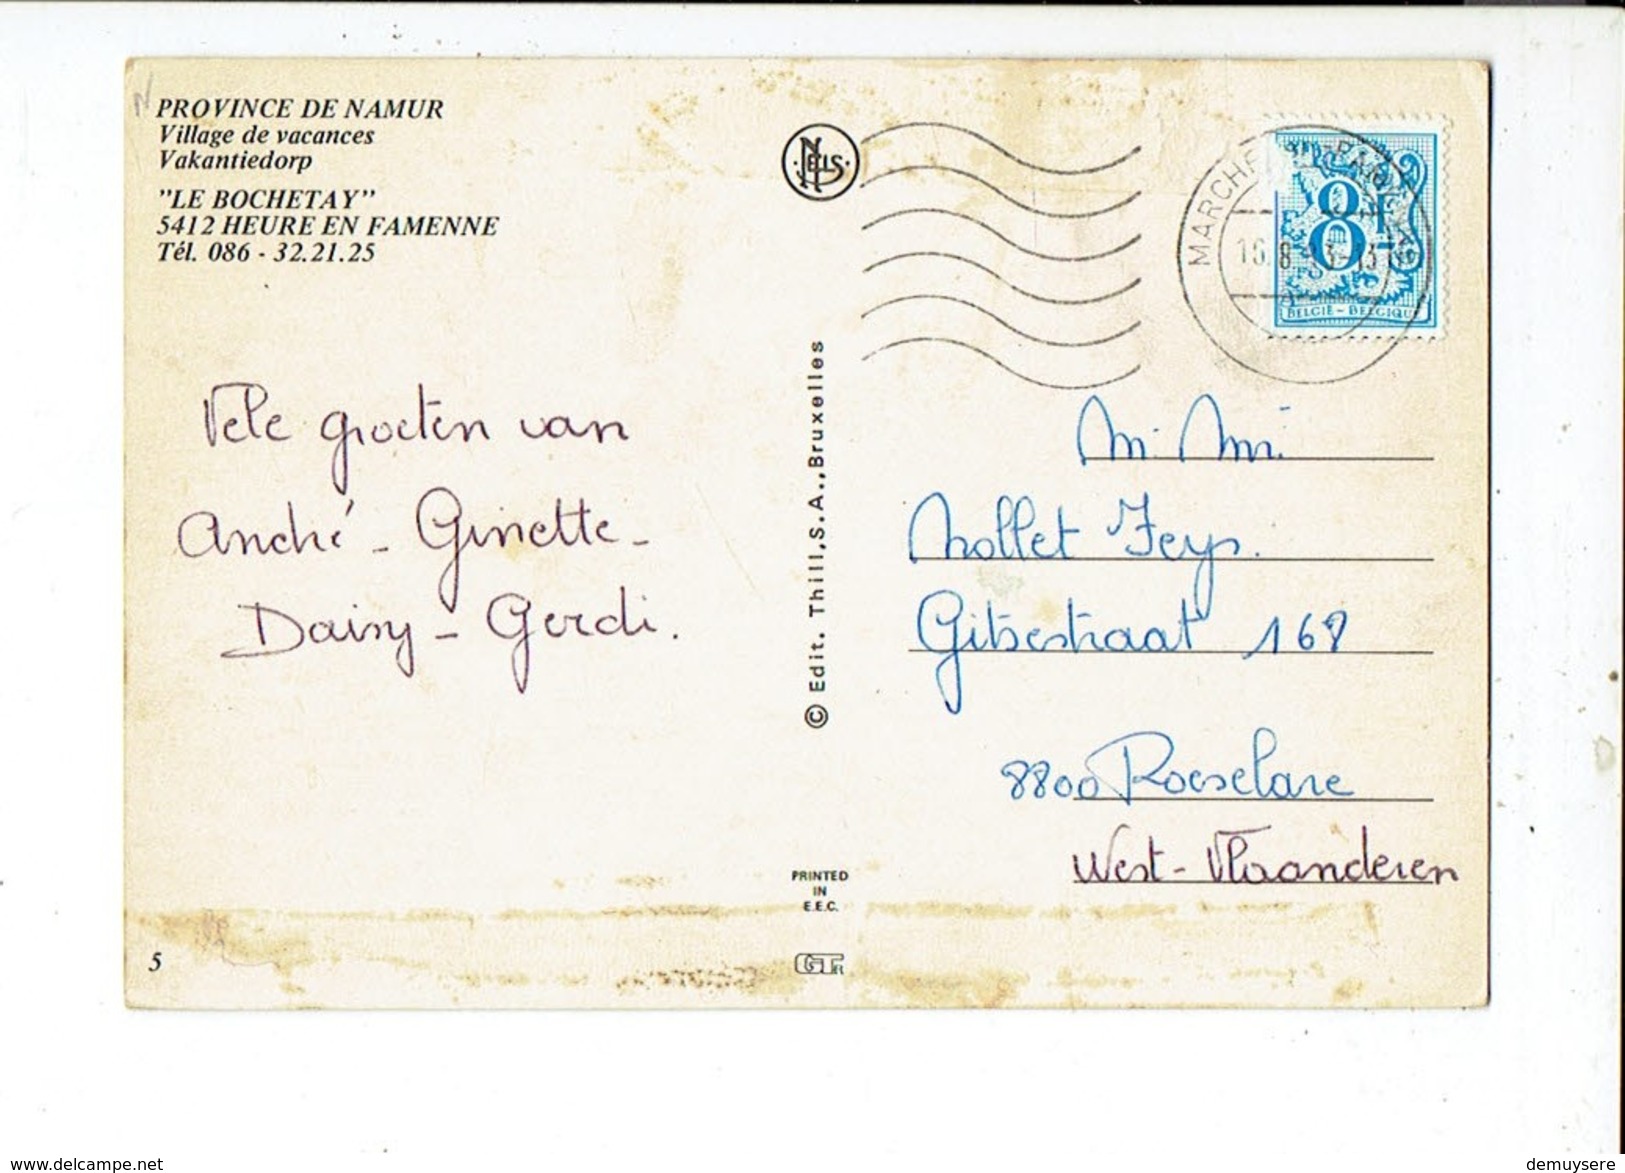 PROVINCE DE NAMUR
Village de vacances
Vakantiedorp
"LE BOCHETAY"
5412 HEURE EN FAMENNE
Tél. 086 - 32.21.25
NELS
8F
BELGIË - BELGIQUE
Vele groeten van
André - Ginette -
Daisy - Gerdi.
© Edit. Thill, S.A., Bruxelles
M. Mr.
Nollet Feys.
Gitsestraat 168
8800 Roeselare
West-Vlaanderen
PRINTED
IN
E.E.C.
5
delcampe.net
demuysere